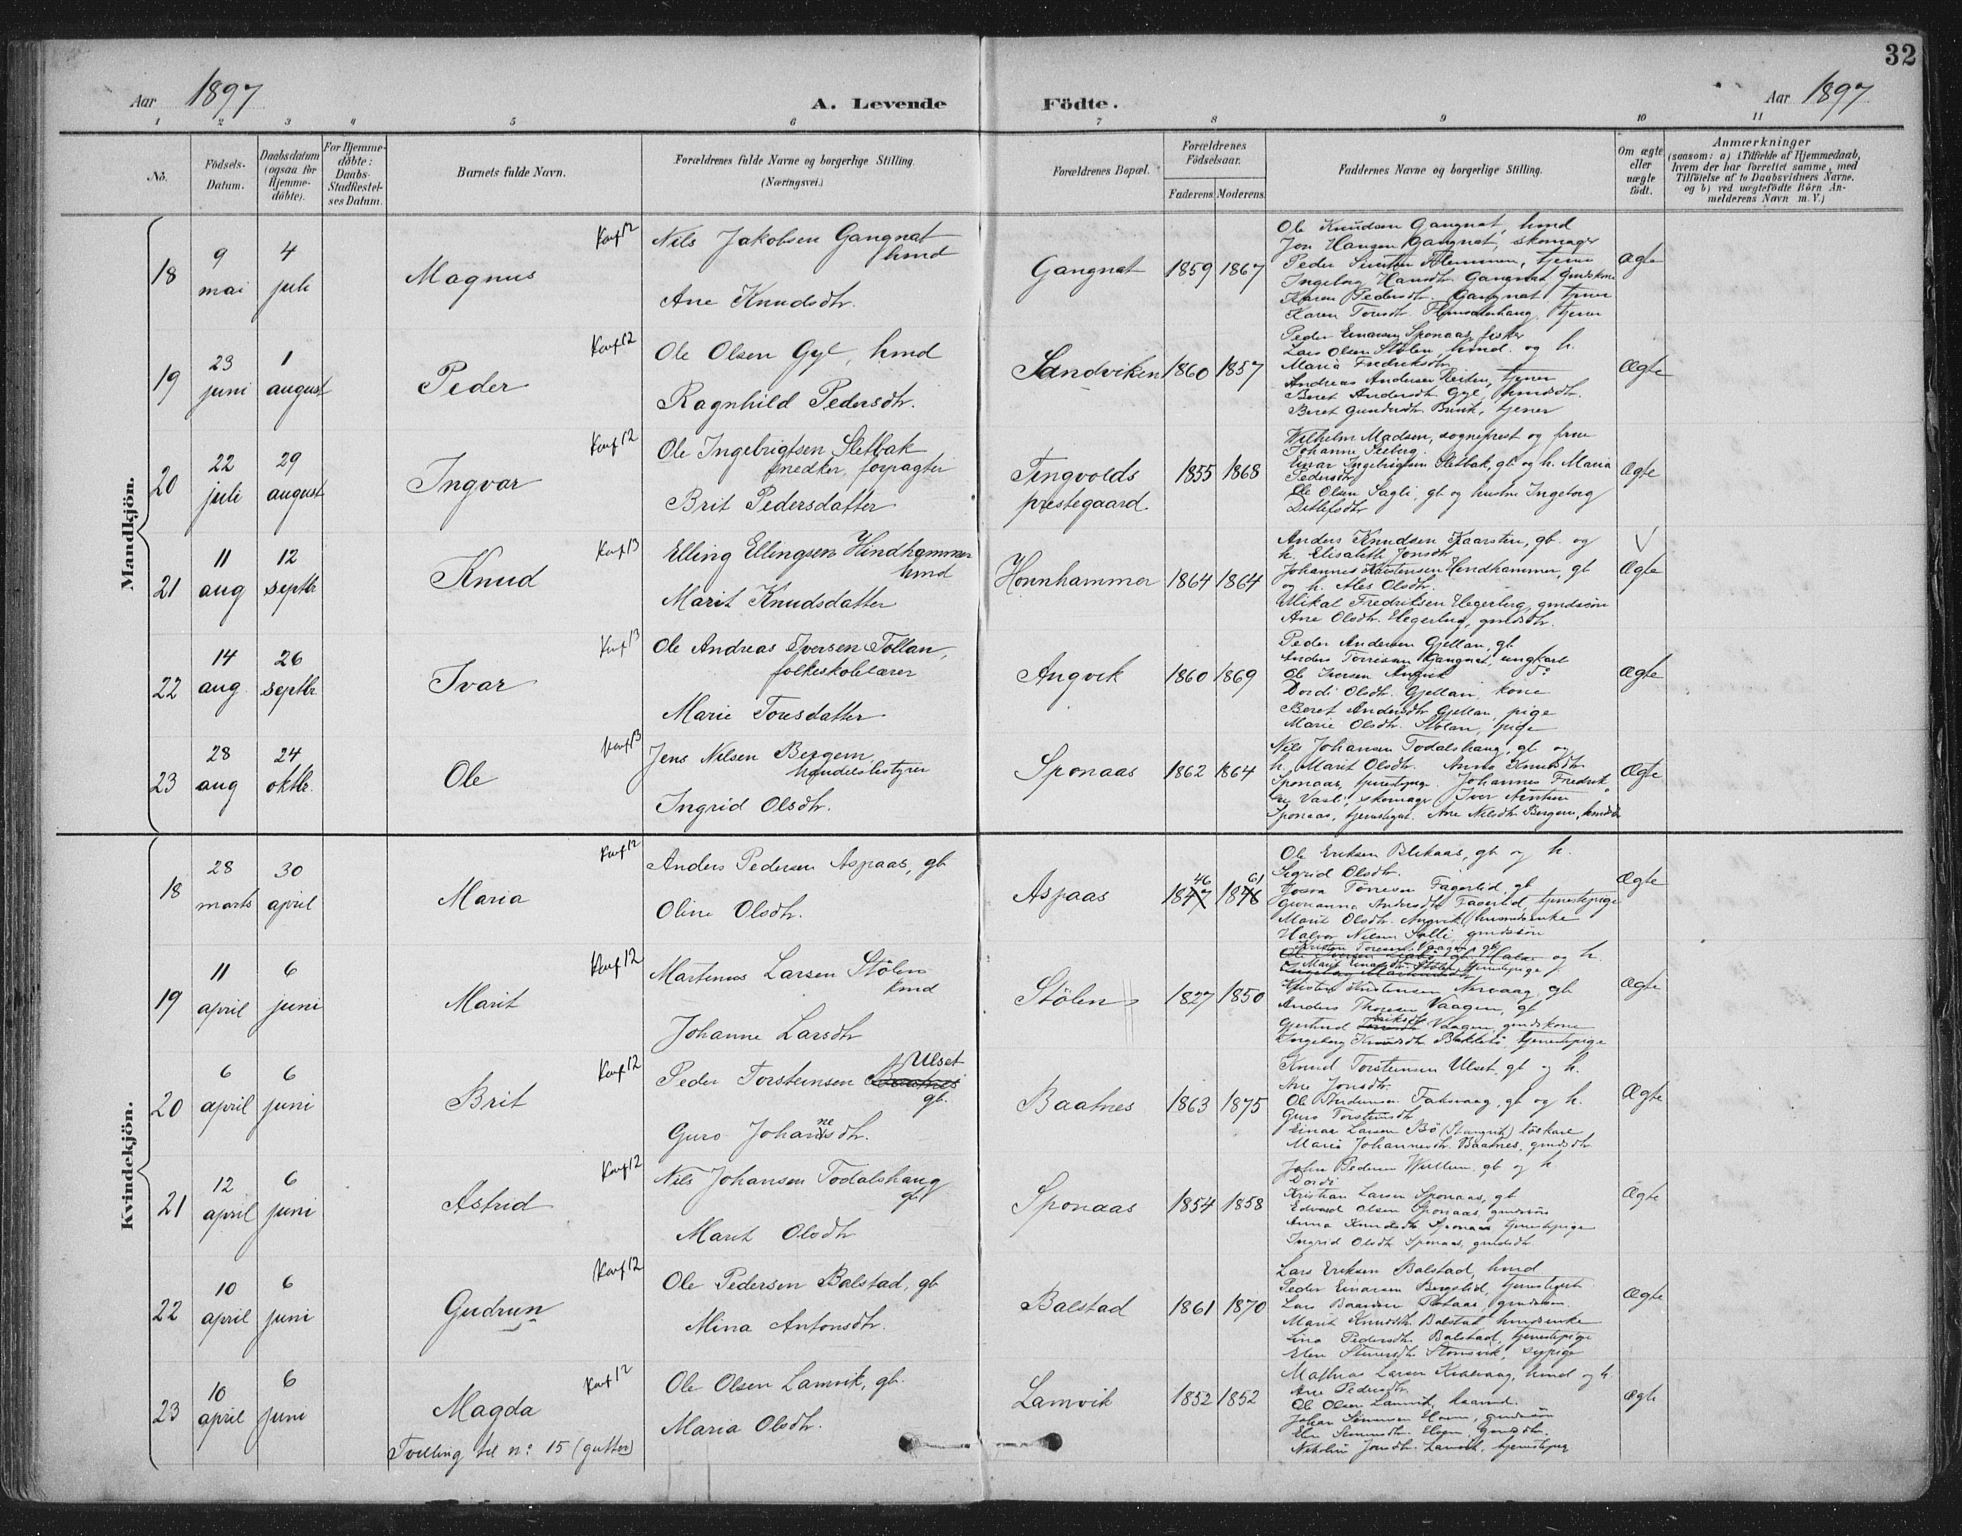 32
Aar 1897 A. Levende Födte. Aar 1897
1 2 3 4 5 6 7 8 9 10 11
No. Födsels-Datum. Daabsdatum (ogsaa for Hjemmedöbte). For Hjemmedöbte: Daabs-Stadfestelses Datum. Barnets fulde Navn. Forældrenes fulde Navne og borgerlige Stilling. (Næringsvei.) Forældrenes Bopæl. Forældrenes Födselsaar. Faderens Moderens Faddernes Navne og borgerlige Stilling. Om ægte eller uægte födt. Anmærkninger
(saasom: a) i Tilfælde af Hjemmedaab, hvem der har forrettet samme, med Tilföielse af to Daabsvidners Navne. og b) ved uægtefödte Börn Anmelderens Navn m. V.)
Mandkjön.
18 9 mai 4 juli Magnus Konf 12
Nils Jakobsen Gangnat
hmd
Ane Knudsdtr.
Gangnat 1859 1867
Ole Knudsen Gangnat, hmd
Jon Hansen Gangnat, skomager
Peder tjener
Ingeborg Hansdtr. Gangnat, gmdskone
Karen Pedersdtr. Gangnat, tjener
Karen Toresdtr. tjener
ægte
19 23 juni 1 august Peder Konf 12
Ole Olsen Gyl, hmd
Ragnhild Pedersdtr.
Sandviken 1860 1857
Peder Einarsen Sponaas, fisker
Lars Olsen Stölen, hmd. og h.
Maria Fredriksdtr.
Andreas Andersen Reiten, tjener
Beret Andersdtr Gyl, hmdsdtr.
Beret Gundersdtr tjener
Ægte
20 22 juli 29 august Ingvar Konf 12
Ole Ingebrigtsen Sletbak
snedker, forpagter
Brit Pedersdatter
Tingvolds
prestegaard. 1855 1868
Wilhelm Madsen, sogneprest og frue
Johanne Seeberg.
Einar Ingebrigtsen Sletbak, gb. og h. Maria
Pedersdtr.
Ole Olsen Sagli, gb og hustru Ingeborg
Detlefsdtr
Ægte
21 11 aug 12 septbr Knud Konf 13
Elling Ellingsen Hindhammer
hmd
Marit Knudsdatter
Honnhammer 1864 1864
Anders Knudsen Kaarsten, gb. og
h. Elisabeth Jonsdtr
Johannes Karstensen Hindhammer, gb
og h. Olsdtr.
Mikal Fredriksen Hegerberg, gmdssön
Ane Olsdtr. Hegerberg, gmdsdtr.
Ægte
22 14 aug. 26 septbr Ivar Konf 13
Ole Andreas Iversen Tollan,
folkeskolelærer
Marie Toresdatter
Angvik 1860 1869
Peder Andersen Gjellan, gb
Anders Torresen Gangnat, ungkarl
Ole Iversen Angvik do
Dordi Olsdtr. Gjellan, kone
Beret Andersdtr Gjellan, pige
Marie Olsdtr. Stölan, pige
Ægte
23 28 aug 24 oktbr. Ole Konf 13
Jens Nilsen Bergem
handelsbestyrer
Ingrid Olsdtr.
Sponaas 1862 1864
Nils Johansen Todalshaug, gb og
h. Marit Olsdtr. Anna Knudsdtr
Sponaas, tjenestepige. Johannes Fredrik-
sen skomager Iver Arntsen
Sponaas, tjenestegut. Ane Nilsdtr Bergem, hmdsdtr
Ægte
Kvindekjön.
18 28 marts 30 april Maria Konf 12
Anders Pedersen Aspaas, gb
Oline Olsdtr.
Aspaas 46 61
Ole Eriksen Blekaas, gb og h.
Sigrid Olsdtr.
Törresen Fagerlid, gb
Andersdtr Fagerlid, tjenestepige
Marit Olsdtr. Angvik, husmdsenke
Halvor Nilsen gmdssön
Ægte
19 11 april 6 juni Marit Konf 12
Martinus Larsen Stölen
hmd
Johanne Larsdtr
Stölen 1827 1850
Kristen Toresen Vaagen, gb
og h.
Marit Einarsdtr Stölen, tjenestepige
Kristen Kristensen Nervaag, gb
Anders Thoresen Vaagen, gb
Gjertrud Eriksdtr Vaagen, gmdskone
Ingeborg Knudsdtr tjenestepige
Ægte
20 6 april 6 juni Brit Konf 12
Peder Torsteinsen Ulset
gb.
Guro Johannesdtr.
Baatnes 1863 1875
Knud Torsteinsen Ulset, gb og h.
Ane Jonsdtr.
Ole Andersen gb og h.
Guro Torsteinsdtr
Einar Larsen Bö (Stangvik) löskarl
Maria Johannesdtr. Baatnes, gmdsdtr.
Ægte
21 12 april 6 juni Astrid Konf 12
Nils Johansen Todalshaug
gb.
Marit Olsdtr
Sponaas 1854 1858
John Pedersen gb og h
Dordi
Kristian Larsen Sponaas, gb
Edvard Olsen Sponaas, gmdssön
Anna Knudsdtr Sponaas tjenestepige
Ingrid Olsdtr Sponaas, gmdsdtr.
Ægte
22 10 april 6 juni Gudrun Konf 12
Ole Pedersen Balstad, gb
Mina Antonsdtr.
Balstad 1861 1870
Lars Eriksen Balstad, hmd
Peder Einarsen tjenestegut
Lars Baardsen gmdssön
Marit Knudsdtr Balstad hmdsenke
Lina Pedersdtr. Balstad, tjenestepige
Elen sypige
Ægte
23 10 april 6 juni Magda Konf 12
Tvilling til no. 15 (gutter)
Ole Olsen Lamvik, gb.
Maria Olsdtr.
Lamvik 1852 1852
Mathias Larsen hmd og h.
Ane Pedersdtr.
Ole Olsen Lamvik,
Johan gmdssön
Elen gmdsdtr.
Jonsdtr. Lamvik, tjenestepige
Ægte